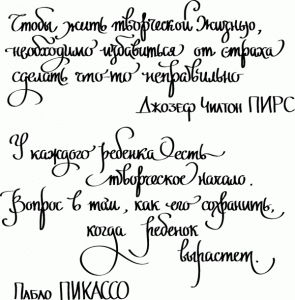 Чтобы жить творческой жизнью,
необходимо избавиться от страха
сделать что-то неправильно
Джозеф Чилтон ПИРС
У каждого ребенка есть
творческое начало.
Вопрос в том, как его сохранить,
когда ребенок
вырастет.
Пабло ПИКАССО